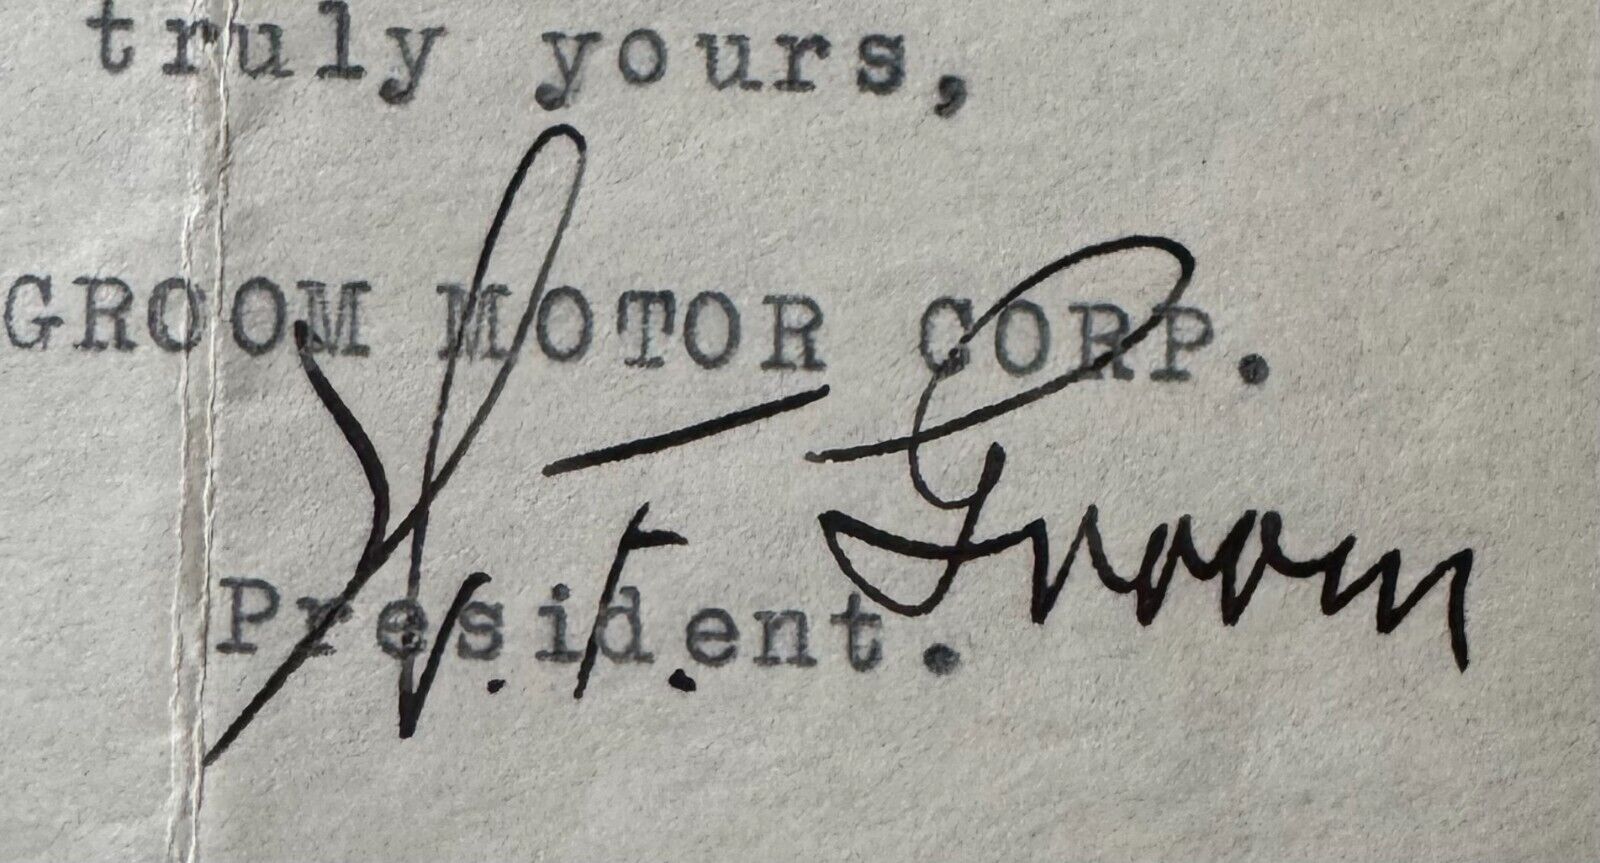 truly yours,
GROOM MOTOR CORP.
Groom
President.